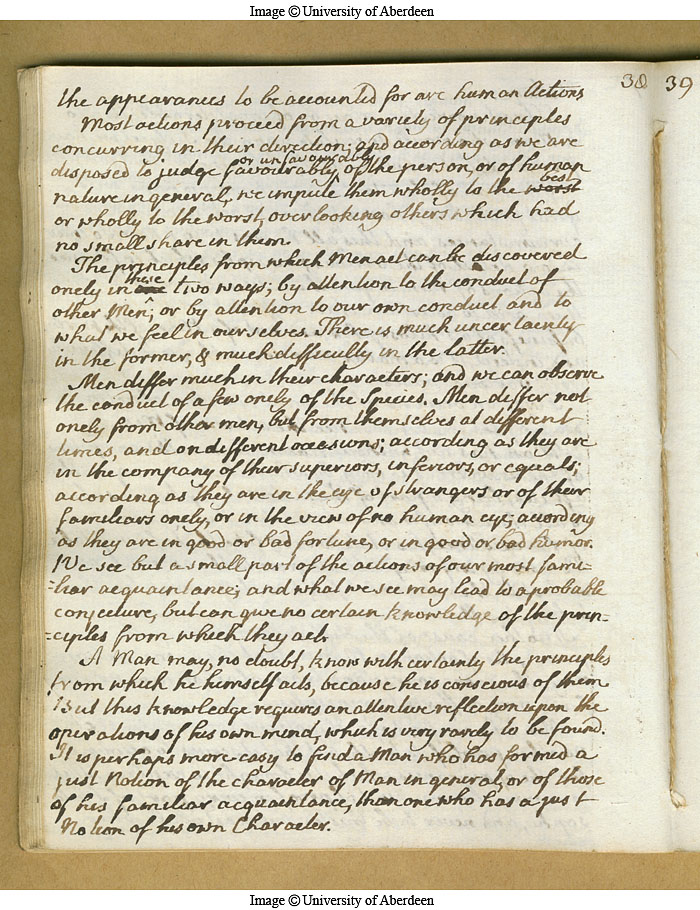 Image © University of Aberdeen
38 39
the appearances to be accounted for are human Actions
Most actions proceed from a variety of principles
concurring in their direction; and according as we are
or unfavourably
disposed to judge favourably of the person, or of human
best
nature in general, we impute them wholly to the worst
or wholly to the worst, over looking others which had
no small share in them.
The principles from which Men act can be discovered
these
onely in two ways; by attention to the conduct of
other Men; or by attention to our own conduct and to
what we feel in ourselves. There is much uncertainty
in the former, & much difficulty in the latter.
Men differ much in their characters; and we can observe
the conduct of a few onely of the Species. Men differ not
onely from other men, but from themselves at different
times, and on different occasions; according as they are
in the company of their superiors, inferiors, or equals;
according as they are in the eye of strangers or of their
familiars onely, or in the view of no human eye; according
as they are in good or bad fortune, or in good or bad humor.
We see but a small part of the actions of our most fami-
-liar acquaintance; and what we see may lead to a probable
conjecture, but can give no certain knowledge of the prin-
-ciples from which they act.
A Man may, no doubt, know with certainty the principles
from which he himself acts, because he is conscious of them
But this knowledge requires an attentive reflection upon the
operations of his own mind, which is very rarely to be found.
It is perhaps more easy to find a Man who has formed a
just Notion of the character of Man in general, or of those
of his familiar acquaintance, than one who has a just
Notion of his own Character.
Image © University of Aberdeen